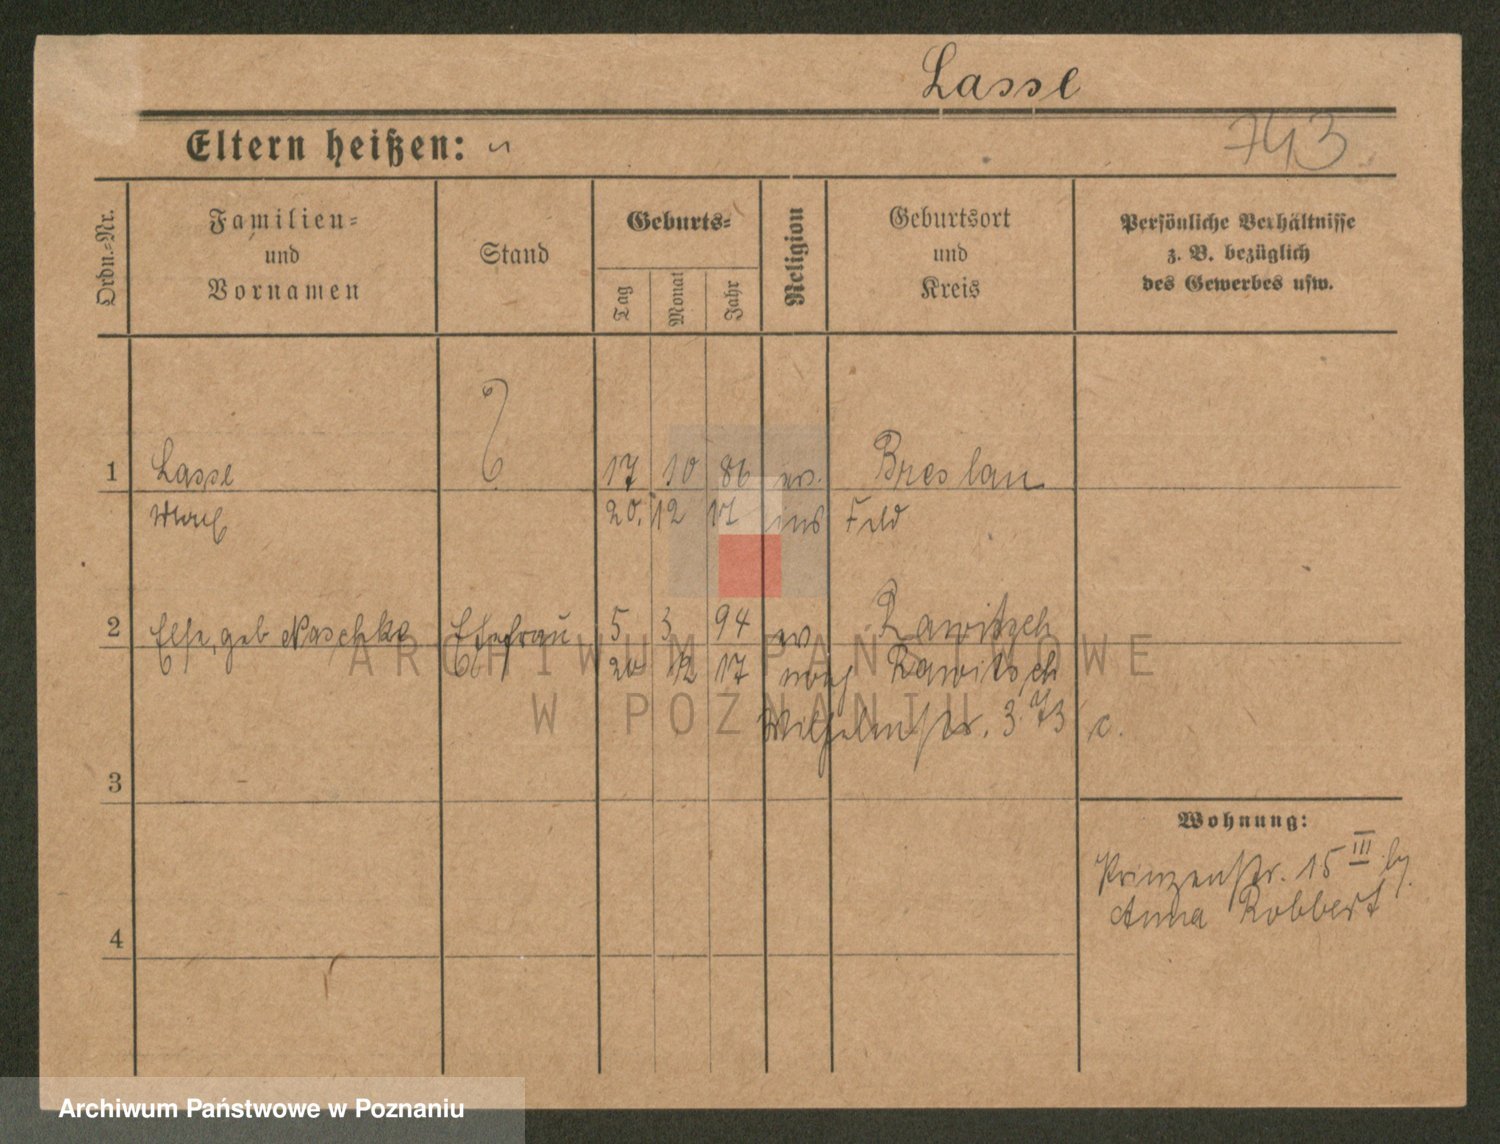 Lasse
Eltern heißen:
743
Ordn.=Nr.
Familien=
und
Vornamen
Stand
Geburts=
Tag
Monat
Jahr
Religion
Geburtsort
und
Kreis
Persönliche Verhältnisse
z. B. bezüglich
des Gewerbes usw.
1 Lasse 17 10 86 ev. Breslau
Max 20. 12 17 ins Feld
2 Else, geb Naschke Ehefrau 5 3 94 ev Rawitsch
20 12 17 nach Rawitsch
Wilhelmstr. 373 c.
3
Wohnung:
Prinzenstr. 15 III by
Anna Robbert
4
ARCHIWUM PAŃSTWOWE
W POZNANIU
Archiwum Państwowe w Poznaniu